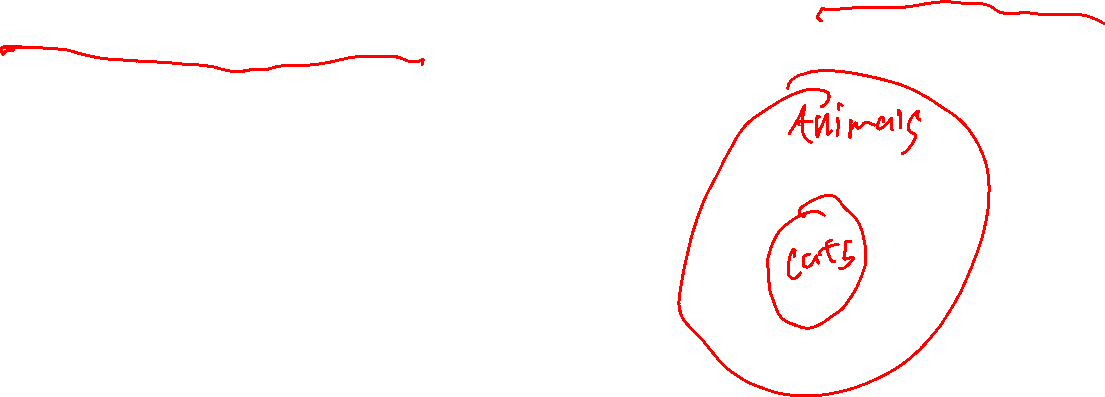 Animals
Cats